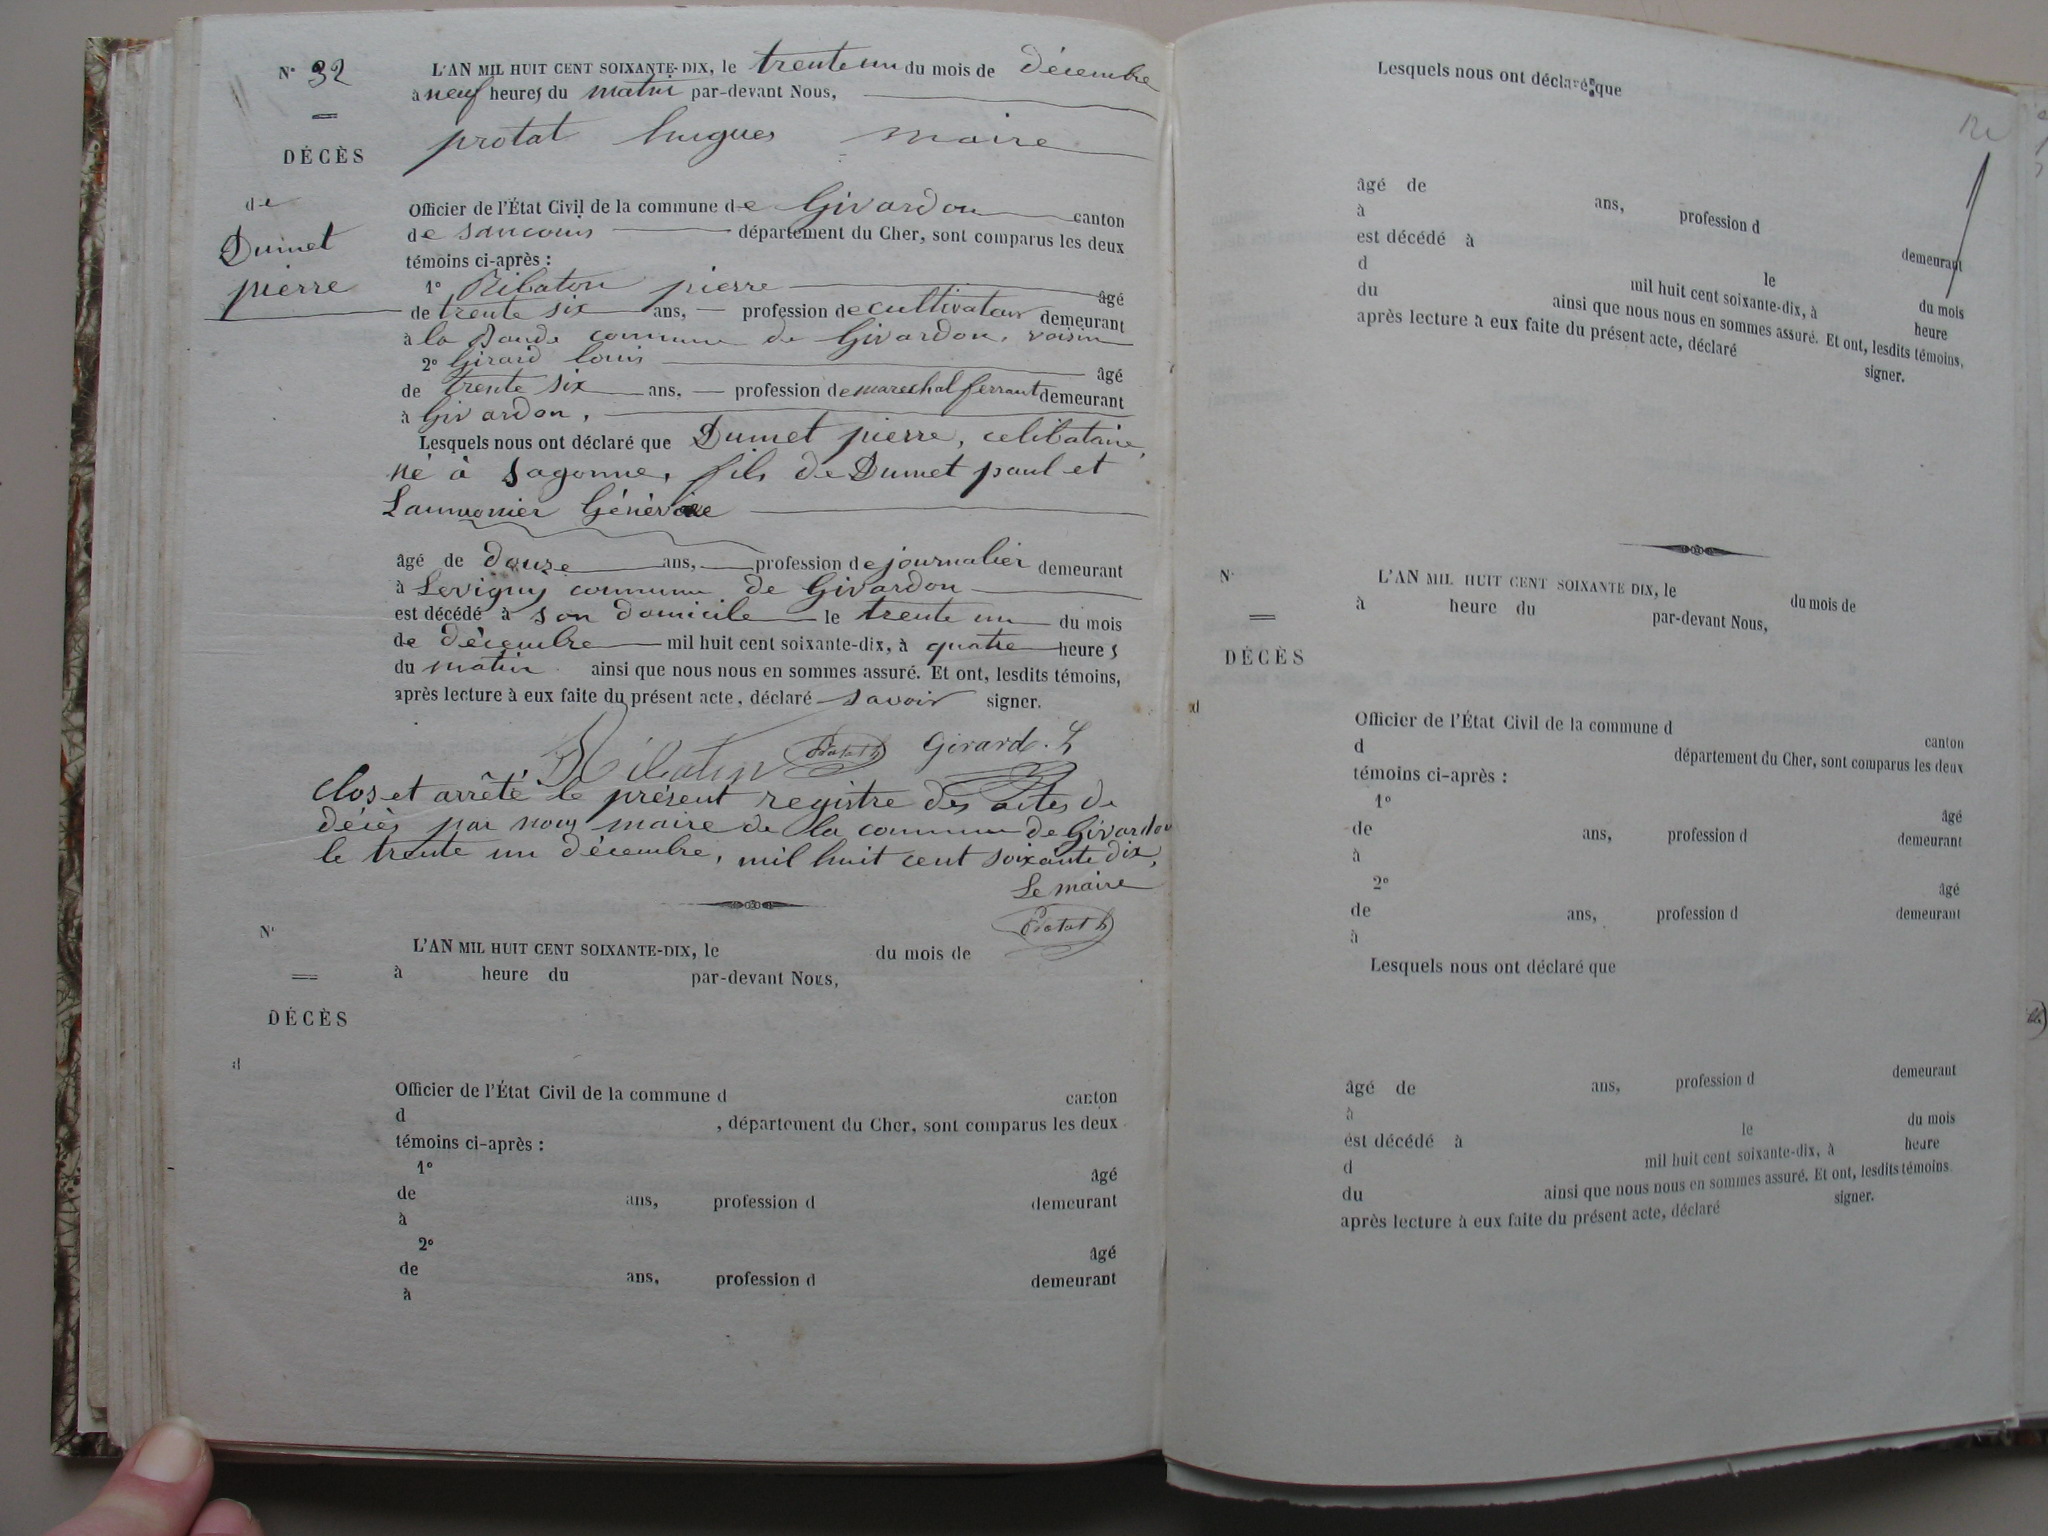 N° 32
L'AN MIL HUIT CENT SOIXANTE-DIX, le trente un du mois de décembre
à neuf heures du matin par-devant Nous,
protat hugues maire
DÉCÈS
de
Dumet
pierre
Officier de l'État Civil de la commune de Givardon canton
de sancoins département du Cher, sont comparus les deux
témoins ci-après :
1° Ribaton pierre âgé
de trente six ans, profession de cultivateur demeurant
à la commune de Givardon, voisin
2° Girard louis âgé
de trente six ans, profession de marechal ferrant demeurant
à Givardon,
Lesquels nous ont déclaré que Dumet pierre, celibataire,
né à Sagonne, fils de Dumet paul et
Laumonier
âgé de douze ans, profession de journalier demeurant
à Levigny commune de Givardon
est décédé à son domicile le trente un du mois
de décembre mil huit cent soixante-dix, à quatre heures
du matin ainsi que nous nous en sommes assuré. Et ont, lesdits témoins,
après lecture à eux faite du présent acte, déclaré savoir signer.
Protat h Girard. L
clos et arrêté le présent registre des actes de
décès par nous maire de la commune de Givardon
le trente un décembre, mil huit cent soixante dix,
Le maire
Protat h
N°
L'AN MIL HUIT CENT SOIXANTE-DIX, le du mois de
à heure du par-devant Nous,
DÉCÈS
d
Officier de l'État Civil de la commune d canton
d , département du Cher, sont comparus les deux
témoins ci-après :
1° âgé
de ans, profession d demeurant
à
2° âgé
de ans, profession d demeurant
à
Lesquels nous ont déclaré que
âgé de ans, profession d demeurant
à
est décédé à le du mois
d mil huit cent soixante-dix, à heure
du ainsi que nous nous en sommes assuré. Et ont, lesdits témoins,
après lecture à eux faite du présent acte, déclaré signer.
N°
L'AN MIL HUIT CENT SOIXANTE DIX, le du mois de
à heure du par-devant Nous,
DÉCÈS
d
Officier de l'État Civil de la commune d canton
d département du Cher, sont comparus les deux
témoins ci-après :
1° âgé
de ans, profession d demeurant
à
2° âgé
de ans, profession d demeurant
à
Lesquels nous ont déclaré que
âgé de ans, profession d demeurant
à
est décédé à le du mois
d mil huit cent soixante-dix, à heure
du ainsi que nous nous en sommes assuré. Et ont, lesdits témoins
après lecture à eux faite du présent acte, déclaré signer.